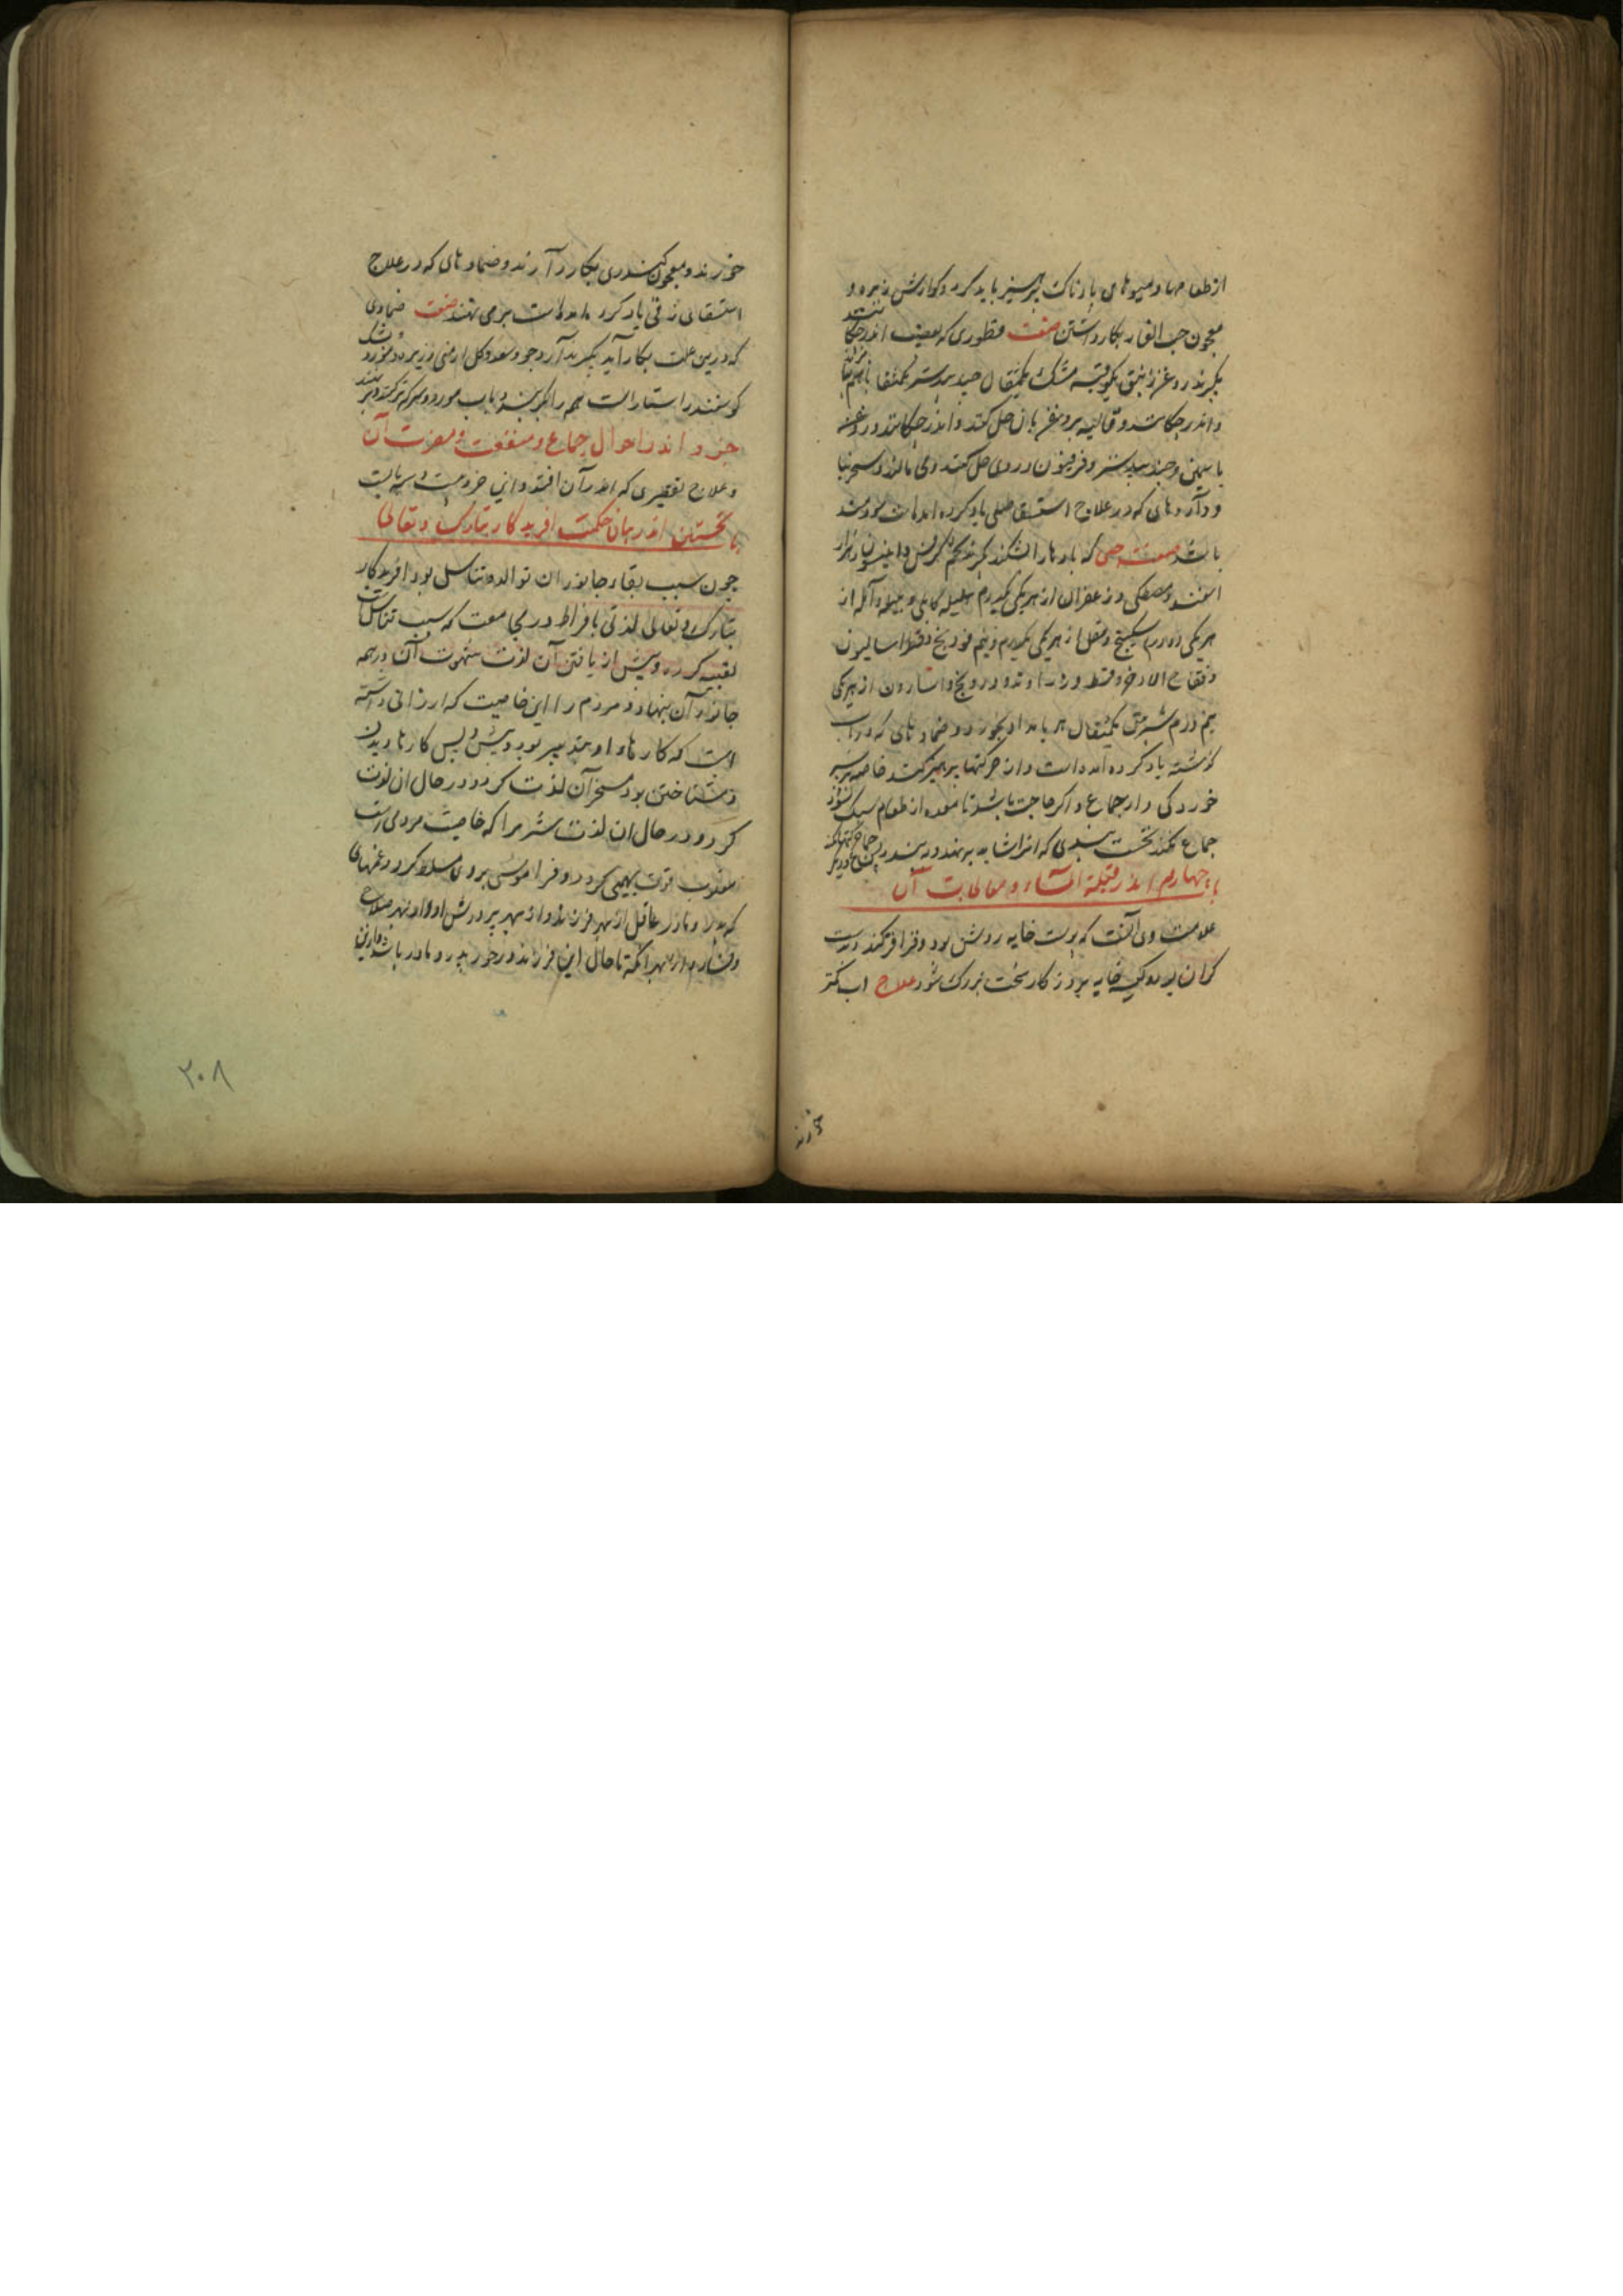 از طعامها و میوهای بادناک پرهیز باید کرد و کوارش زیره و
معجون حب الغار بکار داشتن صفت قطوری که بقضیب اندر چکانند
بکیرند روغن زنبق یکوقیه مشک یکمثقال جندبیدستر یکمثقال
و اندر چکانند و غالیه بروغن بان حل کنند و اندر چکانند و روغن
یاسمین و جندبیدستر و فرفیون در وی حل کنند و می مالند و سجزنیا
و داروهای که در علاج استسقا طبلی یاد کرده اند سودمند
باشد صفت حبی که بادها را بشکند بکیرند تخم کرفس و انیسون و هزار
اسفند و مصطکی و زعفران از هر یکی یکدرم هلیله کابلی و بلیله و آمله از
هر یکی دو درم سکبینج و مقل از هر یکی یکدرم و نیم فودنج و فطراسالیون
و فقاح الاذخر و قسط و زراوند و درونج و اسارون از هر یکی
نیم درم شربتی یکمثقال هر بامداد بخورد و ضمادهای که در باب
کوشته یاد کرده آمده است و از حرکتها پرهیز کنند خاصه بر سیر
خوردکی و از جماع و اکر حاجت باشد تا معده از طعام سبک نشود
جماع نکند نخست ببندی که انرا شاید به بندند
باب چهارم اندر قیلة الماء و معالجت آن
علامت وی آنست که پوست خایه روشن بود و قراقر نکند و دست
کران بود و کیسه خایه بروزکار سخت بزرک شود علاج آب کمتر
خورند
خورند و معجون کندری بکار دارند و ضمادهای که در علاج
استسقای زقی یاد کرده آمده است برمی نهند صفت ضمادی
که درین علت بکار آید بکیرند آرد جو و سعد و کل ارمنی و زیره و مورد و پشک
کوسفند راستاراست همه را بکوبند و بآب مورد و سرکه تر کنند و بر نهند
جزو اندر احوال جماع و منفعت و مضرت آن
و علاج تقصیری که اندر آن افتد و این جزویست و سه باب
باب نخستین اندر بیان حکمت آفریدکار تبارک و تعالی
چون سبب بقاء جانوران توالد و تناسل بود آفریدکار
تبارک و تعالی لذتی بافراط در مجامعت که سبب تناسل است
تعبیه کرد و پیش از یافتن آن لذت شهوت آن در همه
جانوران بنهاد و مردم را این خاصیت که ارزانی داشته
است که کارهاء او بتدبیر بود و پیش و پس کارها دیدن
و شناختن بود مسخر آن لذت کرد و در حال ان لذت
کرد و در حال ان لذت شرم را که خاصیت مردمی است
مغلوب قوت بهیمی کرد و فراموشی بر وی مسلط کرد و غمهای
که پدر و مادر عاقل از بهر فرزند و از بهر پرورش او و از بهر صلاح
و فساد او از بهر آنکه تا حال این فرزند در خور پدر و مادر باشد و ازین
۲۰۸